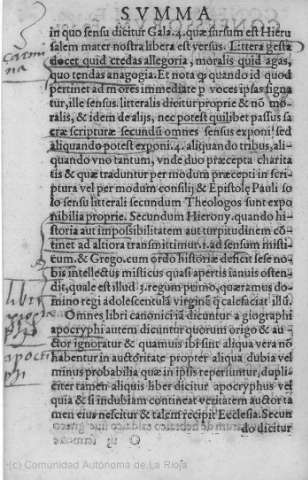 SVMMA
in quo sensu dicitur Gala.4. quæ sursum est Hieru
salem mater nostra libera est versus. Littera gesta
docet quid credas allegoria, moralis quid agas,
quo tendas anagogia. Et nota quod quando id quod
pertinet ad mores immediate per voces ipsas signa
tur, ille sensus litteralis dicitur proprie & nõ mo
ralis, & idem de alijs, nec potest quilibet passus sa
cræ scripturæ secundũ omnes sensus exponi sed
aliquando potest exponi.4. aliquando tribus, ali-
quando vno tantum, vnde duo præcepta charita
tis & quæ traduntur per modum præcepti in scri-
ptura vel per modum consilij & Epistolę Pauli so
lo sensu litterali secundum Theologos sunt expo
nibilia proprie. Secundum Hierony. quando hi-
storia aut impossibilitatem aut turpitudinem cõ
tinet ad altiora transmittimur.i.ad sensum misti-
cum. & Grego. cum ordo historiæ deficit sese no-
bis intellectus misticus quasi apertis ianuis osten-
dit, quale est illud 3. regum primo, quæramus do-
mino regi adolescentulã virginẽ q̃ calefaciat illũ.
Omnes libri canonici iã dicuntur agiographi
apocryphi autem dicuntur quorum origo & au-
ctor ignoratur & quamuis ibi sint aliqua vera nõ
habentur in auctoritate propter aliqua dubia vel
minus probabilia quæ in ipsis reperiuntur, dupli-
citer tamen aliquis liber dicitur apocryphus vel
quia & si indubiam contineat veritatem auctor ta
men eius nescitur & talem recipit Ecclesia. Secun
do dicitur
(c) Comunidad Autónoma de La Rioja